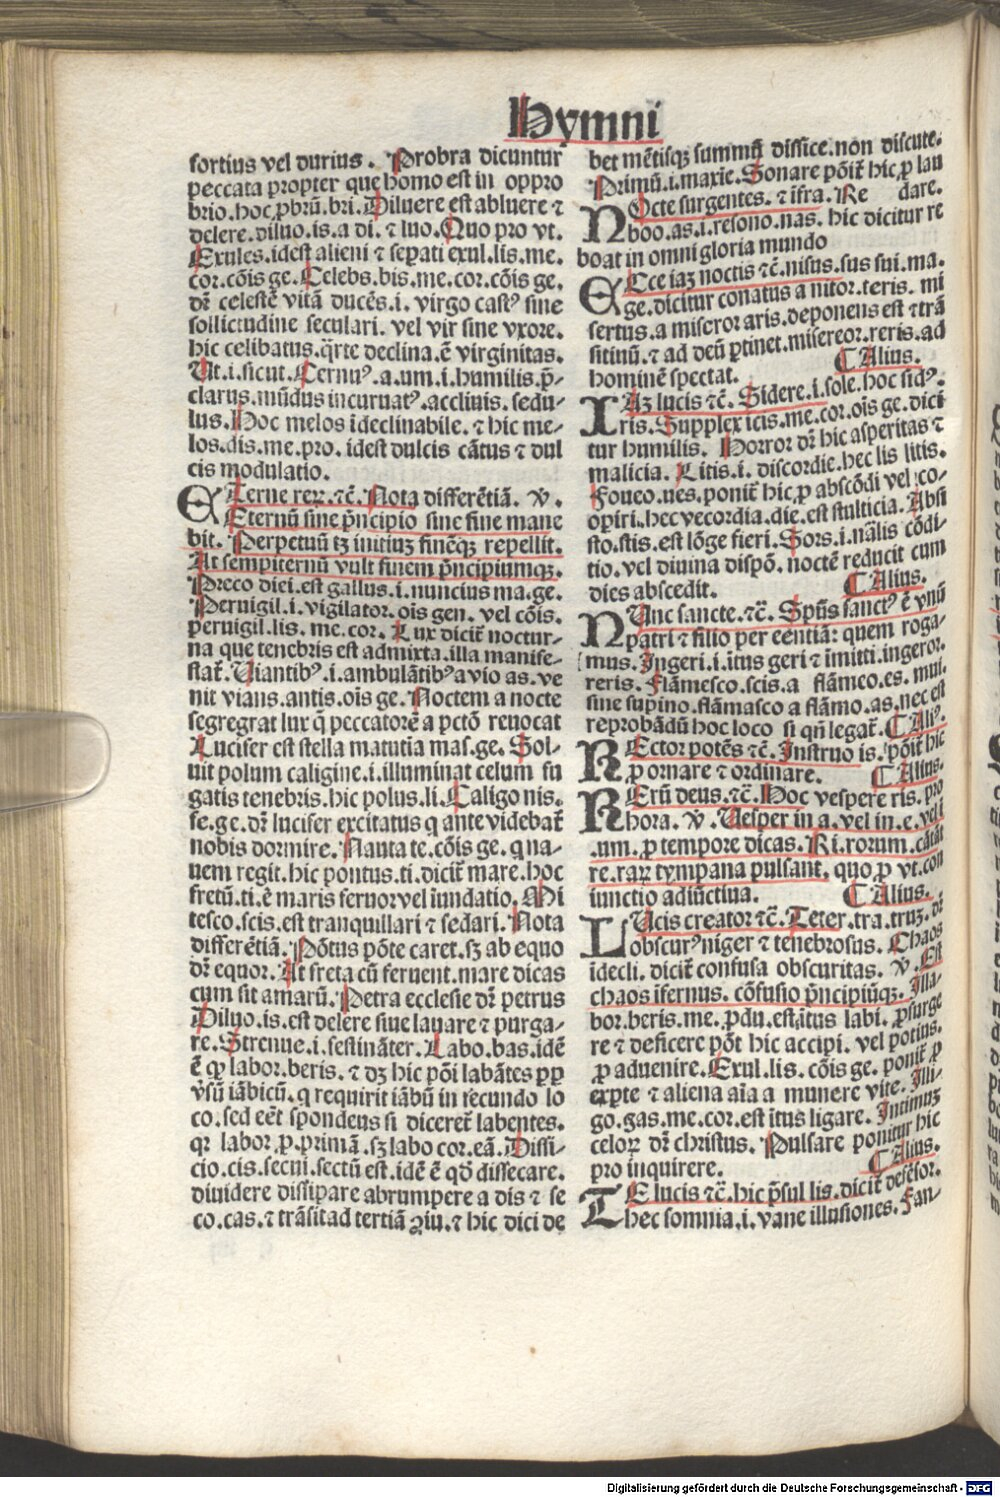 Hymni
fortius vel durius. Probra dicuntur
peccata propter que homo est in oppro
brio.hoc ꝓbrũ.bri.Diluere est abluere ⁊
delere.diluo.is.a di.⁊ luo.Quo pro vt.
Exules.idest alieni ⁊ seꝑati exul.lis.me.
cor.cõis ge.Celebs.bis.me.cor.cõis ge.
dr̃ celestẽ vitã ducẽs.i. virgo castꝰ sine
sollicitudine seculari. vel vir sine vxore.
hic celibatus.q̃rte declina.ẽ virginitas.
Ut.i.sicut.Cernuꝰ.a.um.i.humilis.p̃-
clarus.mũdus incuruatꝰ.accliuis.sedu-
lus.Hoc melos ĩdeclinabile.⁊ hic me-
los.dis.me.pro. idest dulcis cãtus ⁊ dul
cis modulatio.
ETerne rerꝝ.⁊c̃.Nota differẽtiã. ꝟ.
Eternũ sine p̃ncipio sine fine mane
bit. Perpetuũ tꝫ initiuꝫ finẽqꝫ repellit.
At sempiternũ vult finem p̃ncipiumqꝫ.
Preco diei.est gallus.i.nuncius ma.ge.
Peruigil.i.vigilator.oĩs gen. vel cõis.
peruigil.lis. me.cor. Lux dicit̃ noctur-
na que tenebris est admixta.illa manife-
stat̃. Uiantibꝰ.i.ambulãtibꝰ a vio as.ve
nit vians.antis.oĩs ge. Noctem a nocte
segregrat lux q̃ peccatorẽ a pctõ reuocat
Lucifer est stella matutĩa mas.ge. Sol-
uit polum caligine.i.illuminat celum fu
gatis tenebris.hic polus.li.Caligo nis.
fe.ge.dr̃ lucifer excitatus q ante videbat̃
nobis dormire. Nauta te.cõis ge.q na-
uem regit.hic pontus.ti.dicit̃ mare.hoc
fretũ.ti.ẽ maris feruor vel ĩundatio. Mi
tesco.scis.est tranquillari ⁊ sedari. Nota
differẽtiã. Põtus põte caret.sꝫ ab equo
dr̃ equor. At freta cũ feruent.mare dicas
cum sit amarũ. Petra ecclesie dr̃ petrus
Diluo.is.est delere siue lauare ⁊ purga-
re.Strenue.i.festinãter. Labo.bas.idẽ
ẽ qꝙ labor.beris.⁊ dꝫ hic põi labãtes ꝓp
ṽsũ iãbicũ.q requirit iãbũ in secundo lo
co.sed eẽt spondeus si diceret̃ labentes.
qꝛ labor.ꝓ.primã.sꝫ labo cor.eã.Dissi-
cio.cis.secui.sectũ est.idẽ ẽ qõ dissecare.
diuidere dissipare abrumpere a dis ⁊ se
co.cas.⁊ trãsit ad tertiã ꝯiu.⁊ hic dici de
bet mẽtisqꝫ summũ dissice.non discute.
Primũ.i.maxie.Sonare põit̃ hic.ꝓ lau
dare.
NOcte surgentes. ⁊ ĩfra. Re
boo.as.i.resono.nas. hic dicitur re
boat in omni gloria mundo
ECce iaꝫ noctis ⁊c̃.nisus.sus sui.ma.
ge.dicitur conatus a nitor.teris. mi
sertus.a miseror aris.deponens est ⁊ trã
sitiuũ.⁊ ad deũ ꝑtinet.misereor.reris.ad
hominẽ spectat. ¶ Alius.
IAꝫ lucis ⁊c̃. Sidere.i.sole.hoc sidꝰ.
ris.Supplex icis.me.cor.oĩs ge.dici
tur humilis. Horror dr̃ hic asperitas ⁊
malicia. Litis.i. discordie.hec lis litis.
Foueo.ues.ponit̃ hic.ꝓ abscõdi vel co-
opiri.hec vecordia.die.est stulticia. Absi
sto.stis.est lõge fieri. Sors.i.nãlis cõdi
tio.vel diuina dispõ. noctẽ reducit cum
dies abscedit. ¶ Alius.
NUnc sancte.⁊c̃. Spũs sanctꝰ ẽ vnũ
patri ⁊ filio per eẽntiã: quem roga-
mus. Ingeri.i.ĩtus geri ⁊ ĩmitti.ingeror.
reris. Flãmesco.scis.a flãmeo.es. mui.
sine supino.flãmasco a flãmo.as.nec est
reprobãdũ hoc loco si qñ legat̃.¶ Aliꝰ.
REctor potẽs ⁊c̃. Instruo is. põit̃ hic
ꝓ ornare ⁊ ordinare. ¶ Alius.
RErũ deus.⁊c̃.Hoc vespere ris.pro
hora. ꝟ. Uesper in a.vel in.e.vel i
.um.ꝓ tempore dicas. Ri.rorum.cãtãt
re.rarꝝ tympana pulsant. quo.ꝓ vt.con
iunctio adiũctiua. ¶ Alius.
LUcis creator ⁊c̃.Teter.tra.truꝫ.dr̃
obscurꝰ niger ⁊ tenebrosus. Chaos
ĩdecli. dicit̃ confusa obscuritas. ꝟ. Est
chaos ĩfernus. cõfusio p̃ncipiũqꝫ. Illa-
bor.beris.me. ꝓdu.est ĩtus labi. ꝓsurge
re ⁊ deficere põt hic accipi. vel potius.
ꝓ aduenire. Exul.lis. cõis ge. ponit̃ ꝓ
exꝑte ⁊ aliena aĩa a munere vite. Illi-
go.gas.me.cor.est ĩtus ligare. Intimuꝫ
celorꝝ dr̃ christus. Pulsare ponitur hic
pro inquirere. ¶ Alius.
TE lucis ⁊c̃.hic p̃sul lis.dicit̃ defẽsor.
hec somnia.i.vane illusiones. Fan-
Digitalisierung gefördert durch die Deutsche Forschungsgemeinschaft - DFG